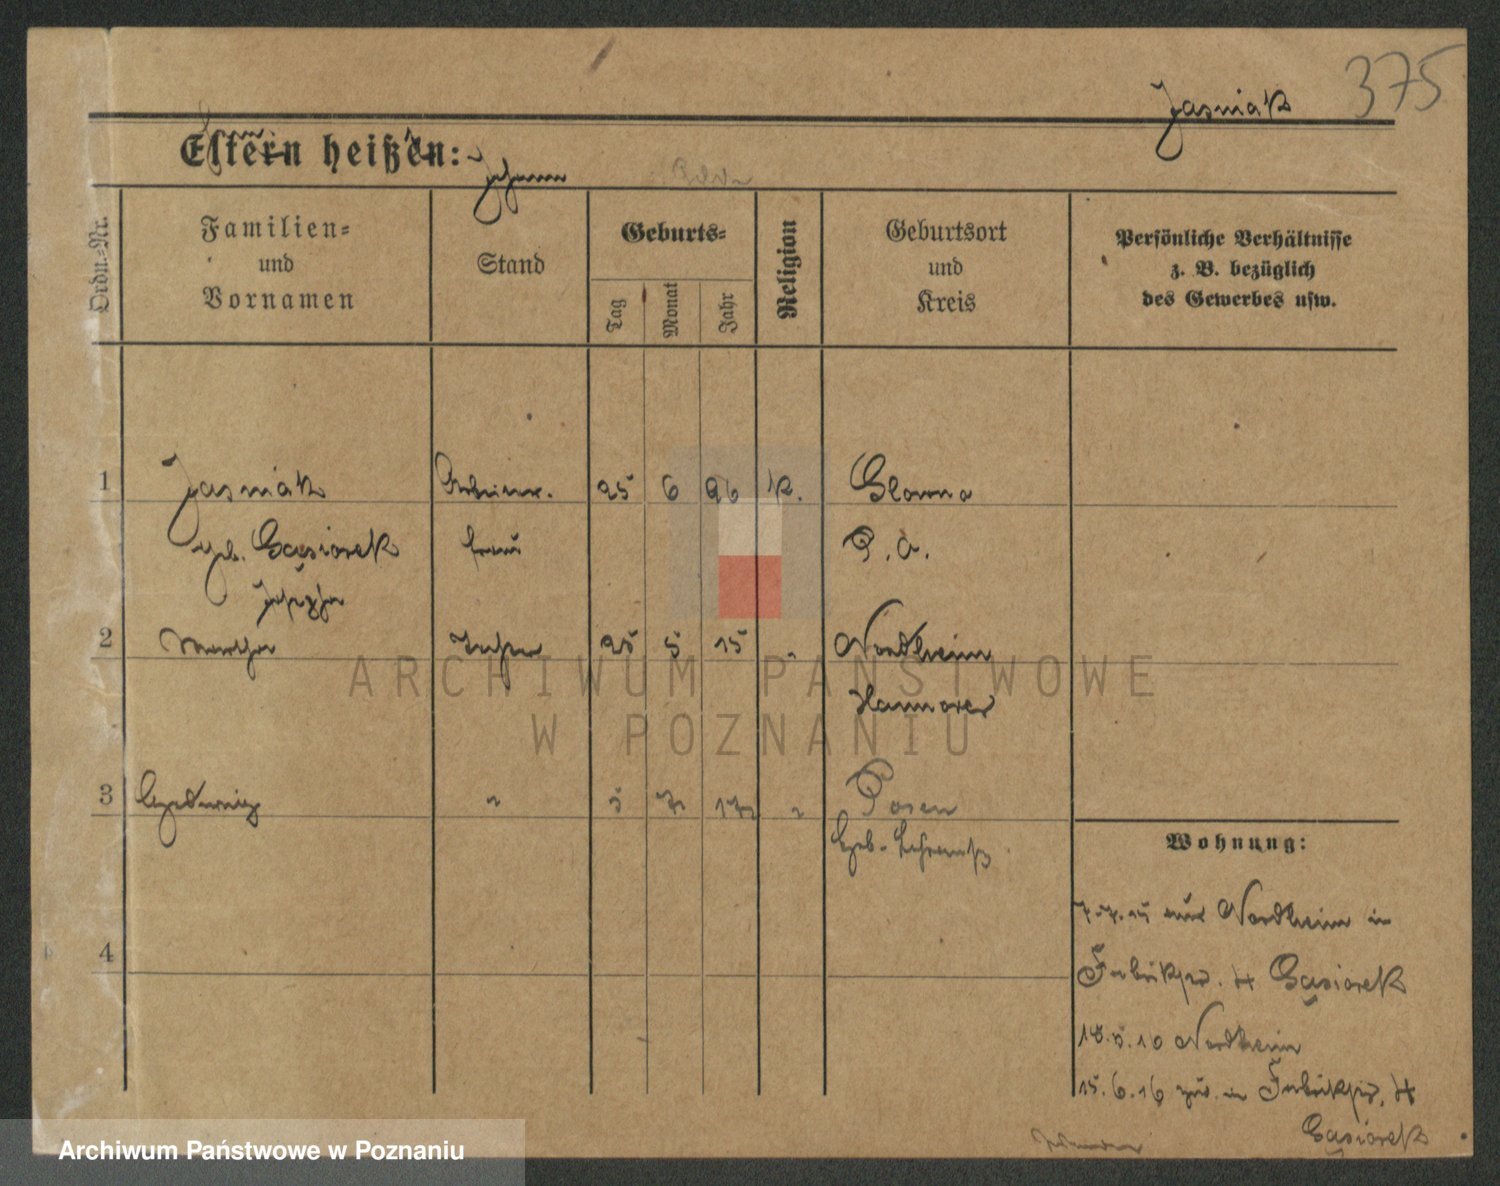 375
Jasniak
Eltern heißen:
Johann
Ordn.-Nr.
Familien-
und
Vornamen
Stand
Geburts-
Tag
Monat
Jahr
Religion
Geburtsort
und
Kreis
Persönliche Verhältnisse
z. B. bezüglich
des Gewerbes usw.
1 Jasniak Arbeiter. 25 6 96 k. Glowno
geb. Gąsiorek frau P. O.
Josepha
2 Martha Tochter 25 5 15 " Nordheim
Hannover
3 Hedwig " 5 7 17 " Posen
Geb.
4
Wohnung:
7.7.15 aus Nordheim in
Fabrikstr. 4 Gąsiorek
18.5.16 Nordheim
15.6.16 zur. in Fabrikstr. 4
Gąsiorek
ARCHIWUM PAŃSTWOWE
W POZNANIU
Archiwum Państwowe w Poznaniu